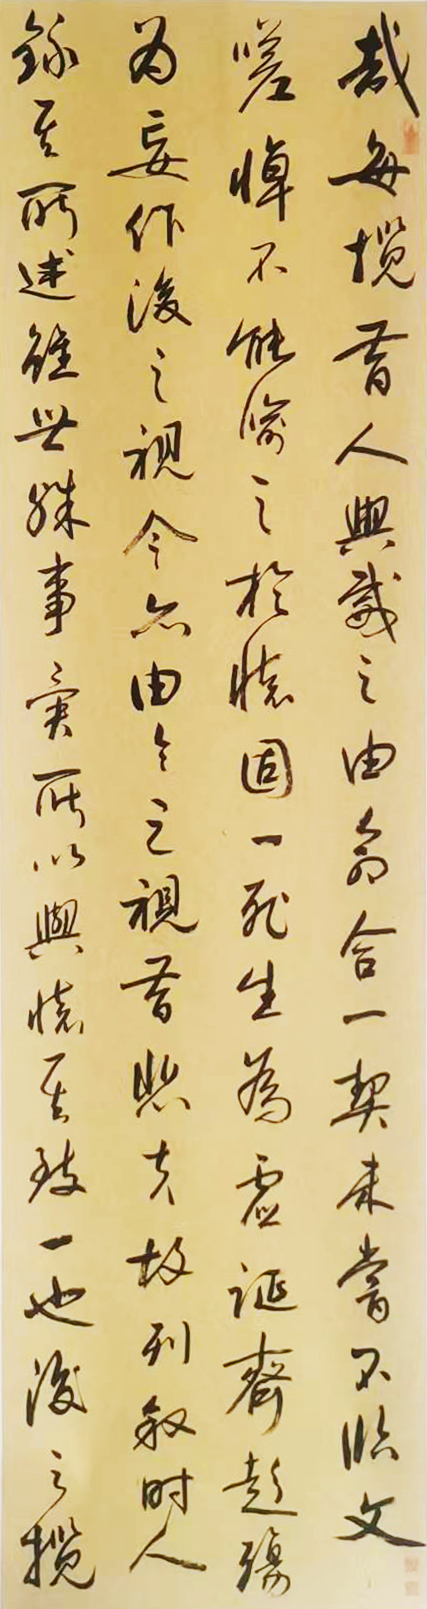 哉每攬昔人興感之由若合一契未嘗不臨文
嗟悼不能喻之於懷固一死生為虛誕齊彭殤
为妄作後之視今亦由今之視昔悲夫故列叙时人
錄其所述雖世殊事異所以興懷其致一也後之攬